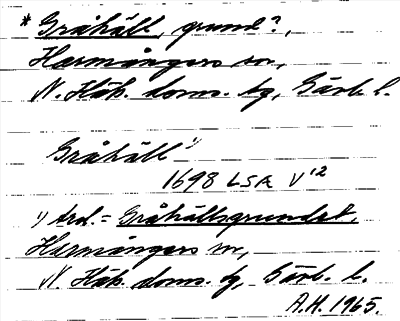 * Gråhäll, grund?,
Harmångers sn,
N. Häls. doms. tg, Gävb. l.
Gråhäll ¹⁾
1698 LSA V¹²
¹⁾ Ard. = Gråhällsgrundet,
Harmångers sn,
N. Häls. doms. tg, Gävb. l.
A.H. 1965.